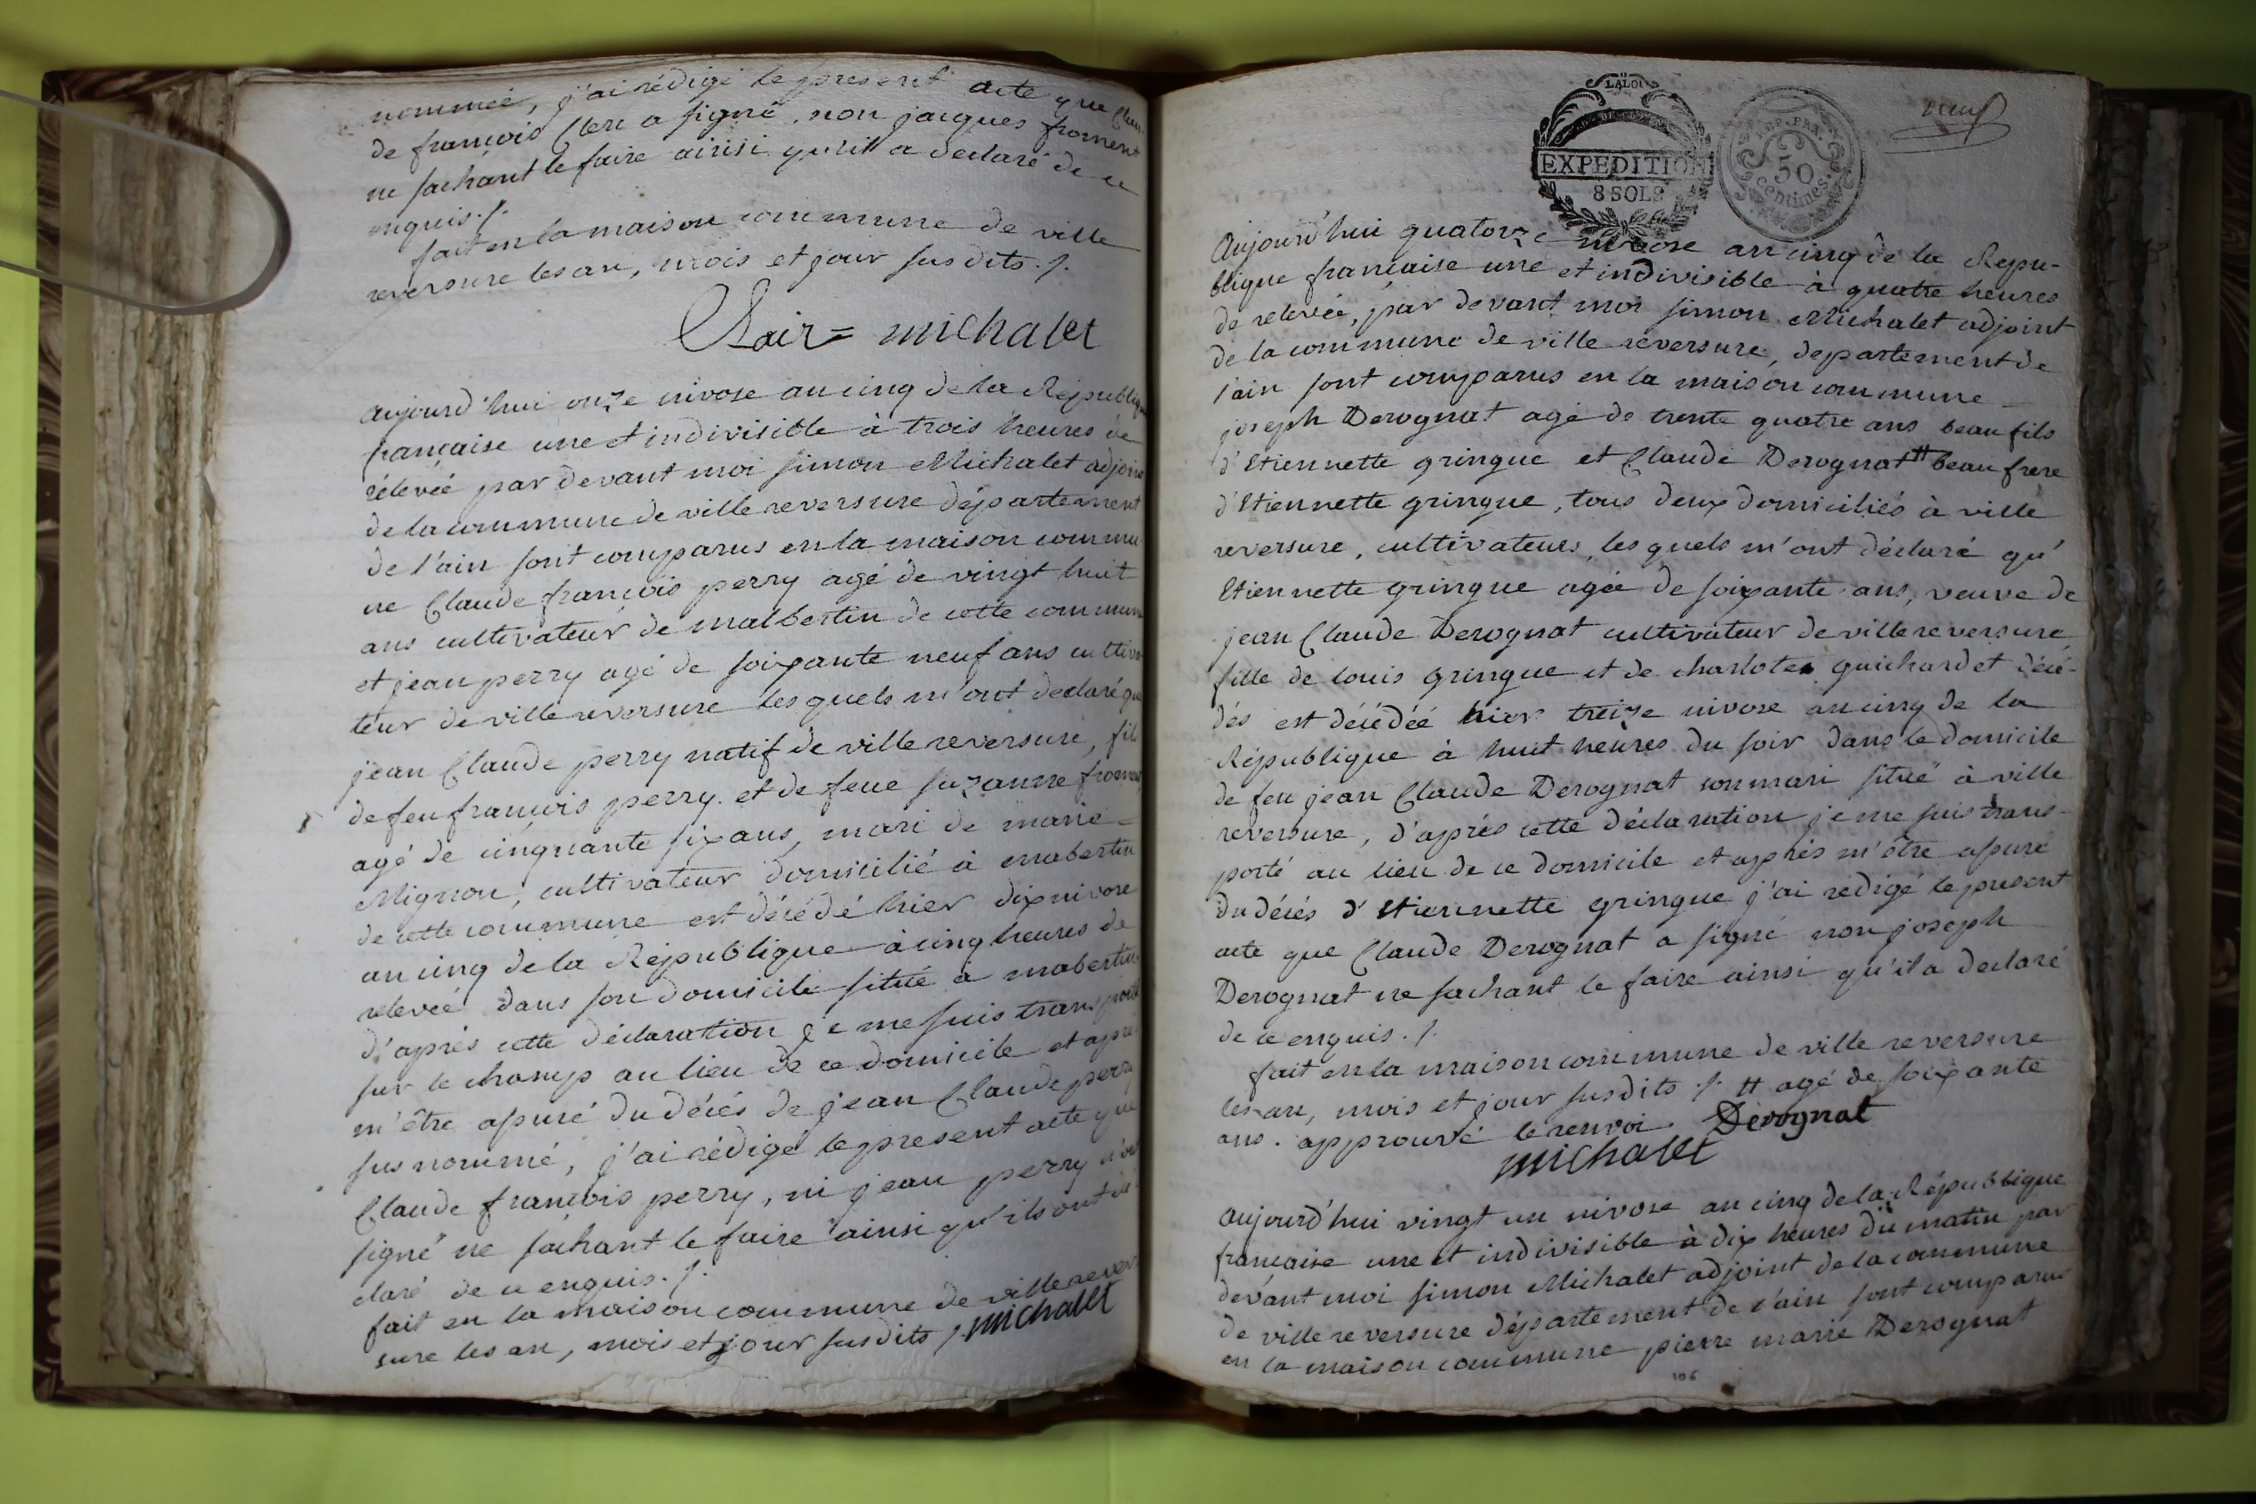 nommée, j'ai rédigé le present acte que Clau
de françois Clere a signé, non jacques froment
ne sachant le faire ainsi qu'ill a declaré de ce
enquis ./.
fait en la maison commune de ville
reversure les an, mois et jour susdits ./.
Clair = michalet
aujourd'hui onze nivose an cinq de la Républiq
française une et indivisible à trois heures de
rélévée par devant moi simon Michalet adjoin
de la commune de ville reversure département
de l'ain sont comparus en la maison commu
ne Claude françois perry agé de vingt huit
ans cultivateur de malbertin de cette commun
et jean perry agé de soixante neuf ans cultiva
teur de ville reversure les quels m'ont declaré que
jean Claude perry natif de ville reversure, fils
de feu françois perry et de feue suzanne froment
agé de cinquante six ans, mari de marie
Mignon, cultivateur domicilié à mabertin
de cette commune est décédé hier dix nivose
an cinq de la République à cinq heures de
relevée dans son domicile situé à mabertin
d'après cette déclaration je me suis transporté
sur le champ au lieu de ce domicile et apré
m'être assuré du décés de jean Claude perry
sus nommé, j'ai rédigé le present acte que
Claude françois perry, ni jean perry n'on
signé ne sachant le faire ainsi qu'ils ont dé
claré de ce enquis ./.
fait en la maison commune de ville rever
sure les an, mois et jour susdits ./. michalet
LA LOI
EXPEDITION
8 SOLS
REP. FRA.
50
centimes.
Aujourd'hui quatorze nivose an cinq de la Répu-
blique française une et indivisible à quatre heures
de relevée, par devant moi simon Michalet adjoint
de la commune de ville reversure, departement de
l'ain sont comparus en la maison commune
joseph Derognat agé de trente quatre ans beau fils
d'Etiennette gringue et Claude Derognat # beau frere
d'Etiennette gringue, tous deux domiciliés à ville
reversure, cultivateurs, les quels m'ont déclaré qu'
Etiennette gringue agée de soixante ans, veuve de
jean Claude Derognat cultivateur de ville reversure
fille de louis gringue et de charlote guichardet décé-
dés est décédée hier treize nivose an cinq de la
République à huit heures du soir dans le domicile
de feu jean Claude Derognat son mari situé à ville
reversure, d'après cette déclaration je me suis trans-
porté au lieu de ce domicile et après m'être assuré
du décés d'Etiennette gringue j'ai rédigé le present
acte que Claude Derognat a signé non joseph
Derognat ne sachant le faire ainsi qu'il a declaré
de ce enquis ./.
fait en la maison commune de ville reversure
les an, mois et jour susdits ./. # agé de soixante
ans. approuvé le renvoi. Derognat
michalet
aujourd'hui vingt un nivose an cinq de la République
française une et indivisible à dix heures du matin par
devant moi simon Michalet adjoint de la commune
de ville reversure département de l'ain sont comparus
en la maison commune pierre marie Derognat
106